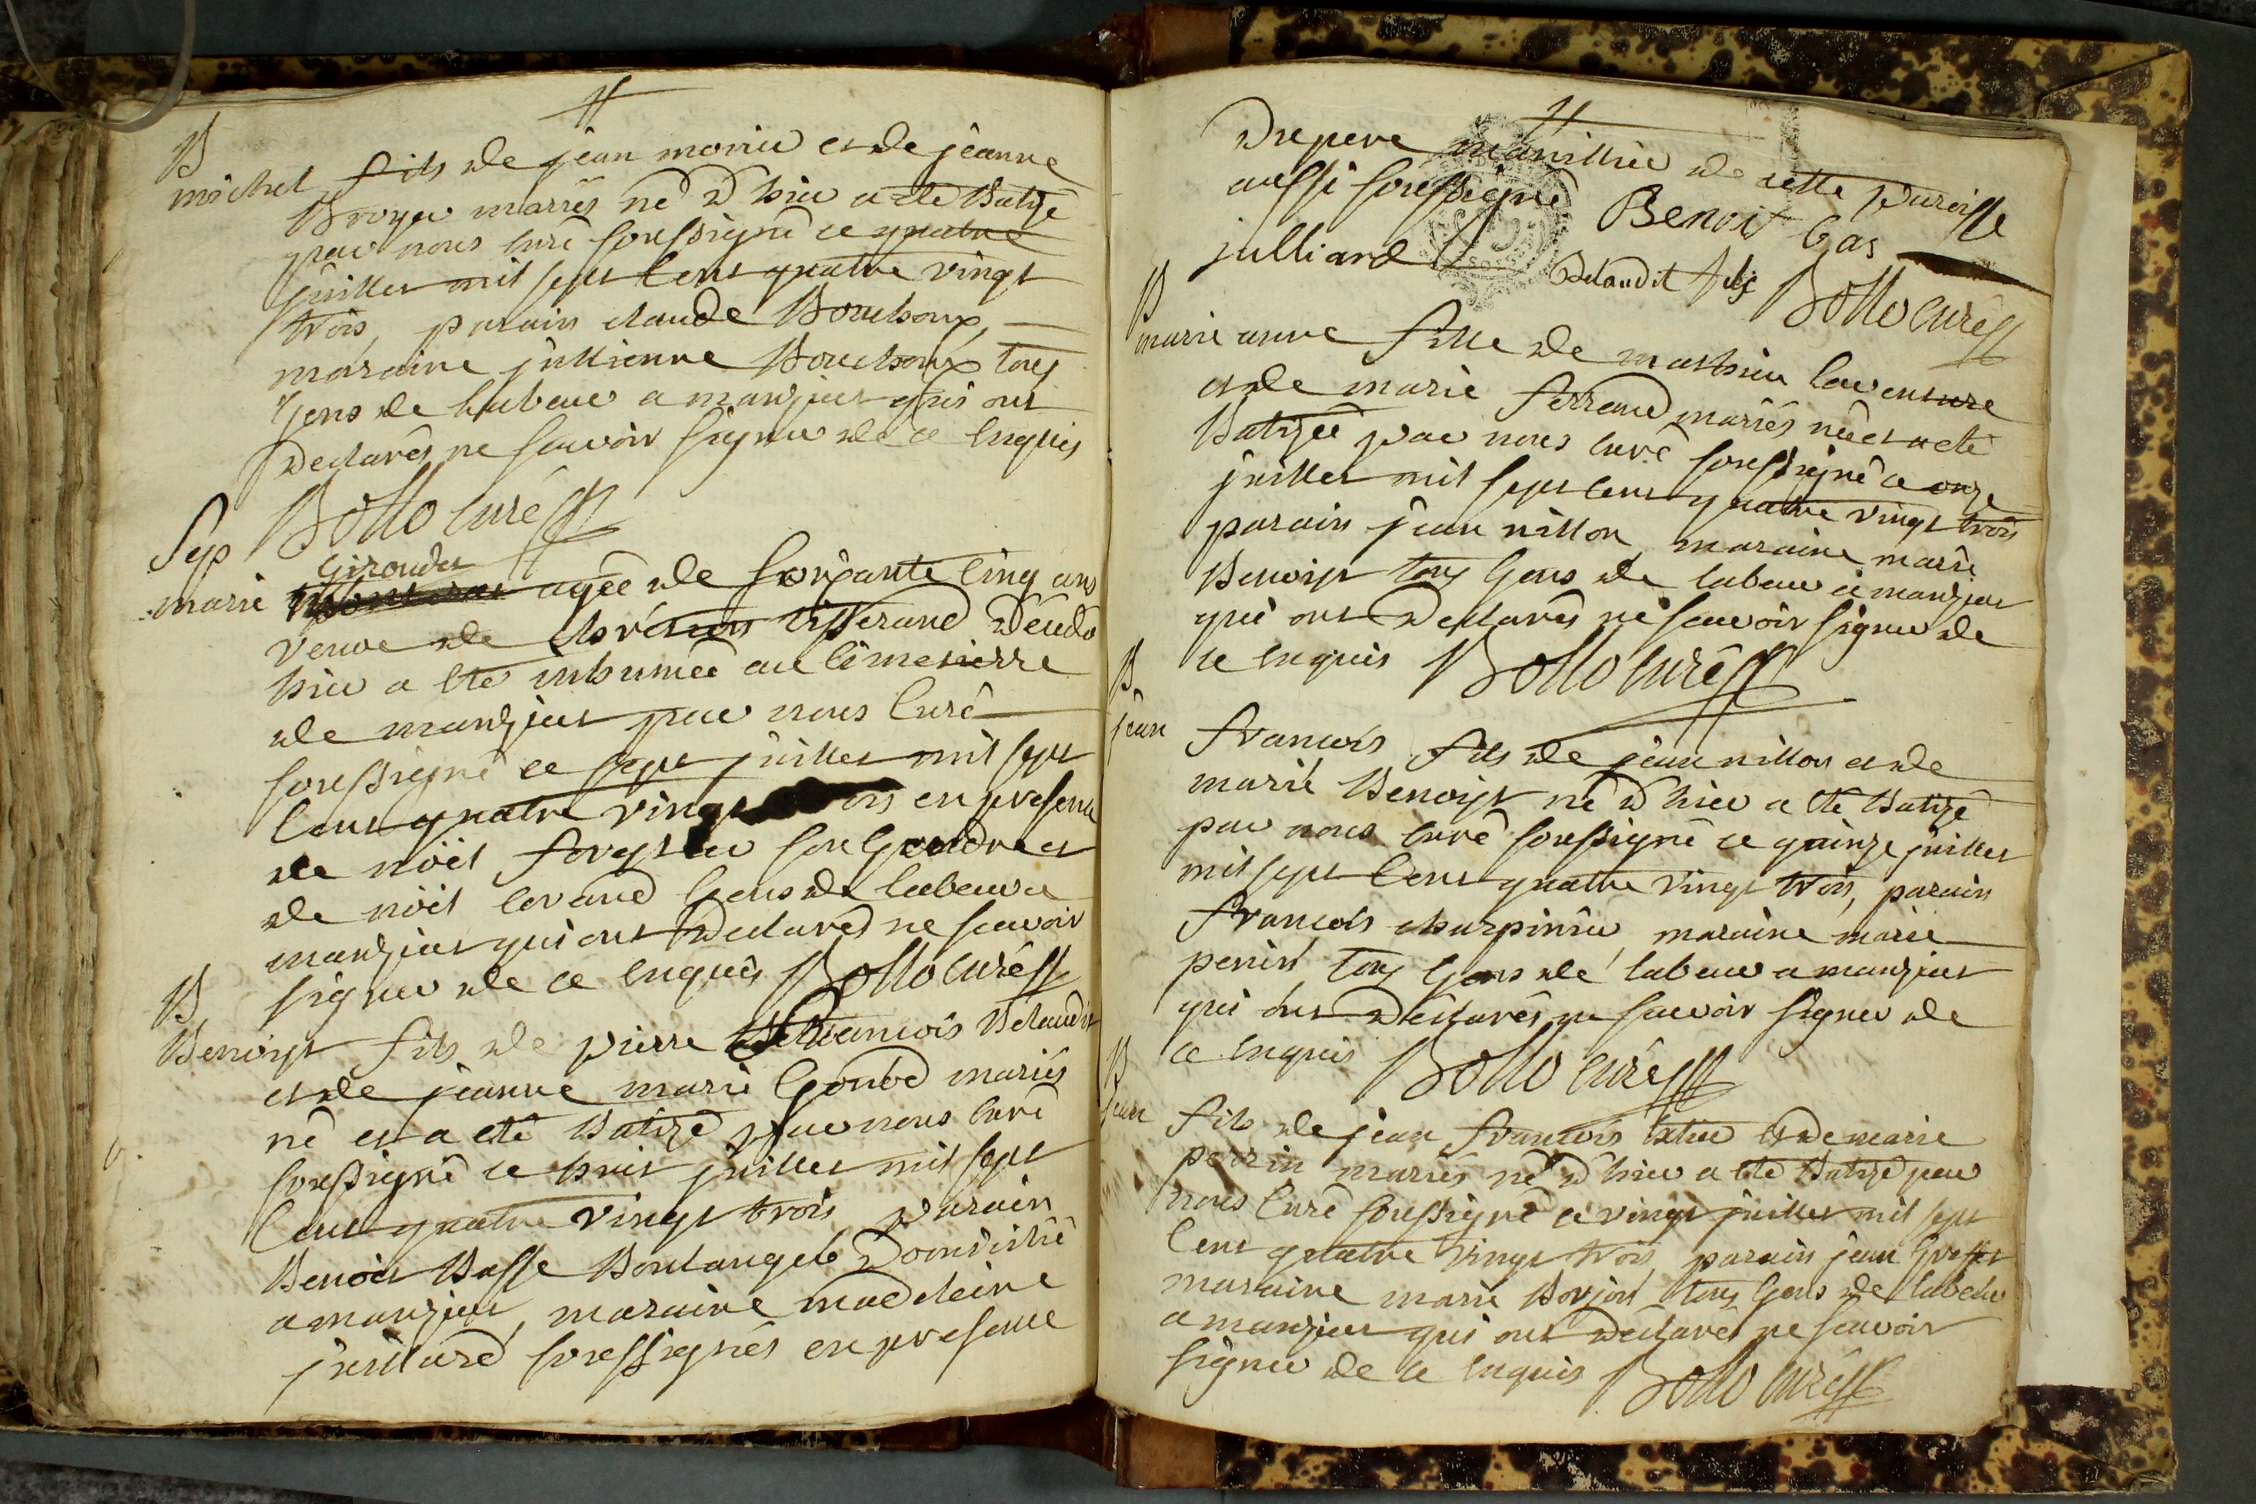 B
michel fils de jean monier et de jeanne
Broyer mariés né d'hier a ete Batizé
par nous curé soussigné ce quatre
juillet mil sept cent quatre vingt
trois, parain claude Bouchoux,
maraine jullienne Bouchoux tous
gens de labeur a manziat qui ont
declarés ne scavoir signer de ce enquis
Sep Bollo curé
giroudet
marie agée de soixante cinq ans
veuve de tisserand decedé
hier a ete inhumée au cimetierre
de manziat par nous curé
soussigné ce sept juillet mil sept
cent quatre vingt en presence
de noël son gendre et
de noël gens de labeur a
manziat qui ont declarés ne scavoir
signer de ce enquis Bollo curé
B
Benoist fils de pierre francois Delaudit
et de jeanne marie Gonod mariés
né et a eté Batizé par nous curé
soussigné ce huit juillet mil sept
cent quatre vingt trois parain
Benoit Basse Boulanger Domicilié
a manziat, maraine madeleine
juillard soussignés en presence
du pere de cette paroisse
aussi soussigné Benoist bas
julliard Delaudit Bollo curé
B
marie anne fille de mathieu laventure
et de marie ferrand mariés née et a eté
Batizée par nous curé soussigné ce onze
juillet mil sept cent quatre vingt trois
parain jean nillon maraine marie
Benoist tous gens de labeur a manziat
qui ont declarés ne scavoir signer de
ce enquis Bollo curé
B
jean francois fils de jean nillon et de
marie Benoist né d'hier a eté Batizé
par nous curé soussigné ce quinze juillet
mil sept cent quatre vingt trois, parain
francois charpinier maraine marie
perin tous gens de labeur a manziat
qui ont declarés ne scavoir signer de
ce enquis Bollo curé
B
jean fils de jean francois et de marie
perrin mariés né d'hier a eté Batizé par
nous curé soussigné ce vingt juillet mil sept
cent quatre vingt trois parain jean
maraine marie Borjon tous gens de labeur
a manziat qui ont declarés ne scavoir
signer de ce enquis Bollo curé